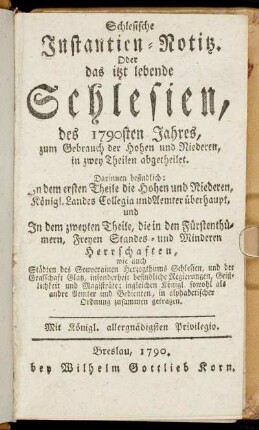 Schlesische
Instantien-Notitz.
Oder
das itzt lebende
Schlesien,
des 1790sten Jahres,
zum Gebrauch der Hohen und Niederen,
in zwey Theilen abgetheilet.
Darinnen befindlich:
In dem ersten Theile die Hohen und Niederen,
Königl. Landes Collegia und Aemter überhaupt,
und
In dem zweyten Theile, die in den Fürstenthü-
mern, Freyen Standes- und Minderen
Herrschaften,
wie auch
Städten des Souverainen Herzogthums Schlesien, und der
Grafschaft Glatz, insonderheit befindliche Regierungen, Geist-
lichkeit und Magisträte: ingleichen Königl. sowohl als
andre Aemter und Bedienten, in alphabetischer
Ordnung zusammen getragen.
Mit Königl. allergnädigsten Privilegio.
Breslau, 1790.
bey Wilhelm Gottlieb Korn.